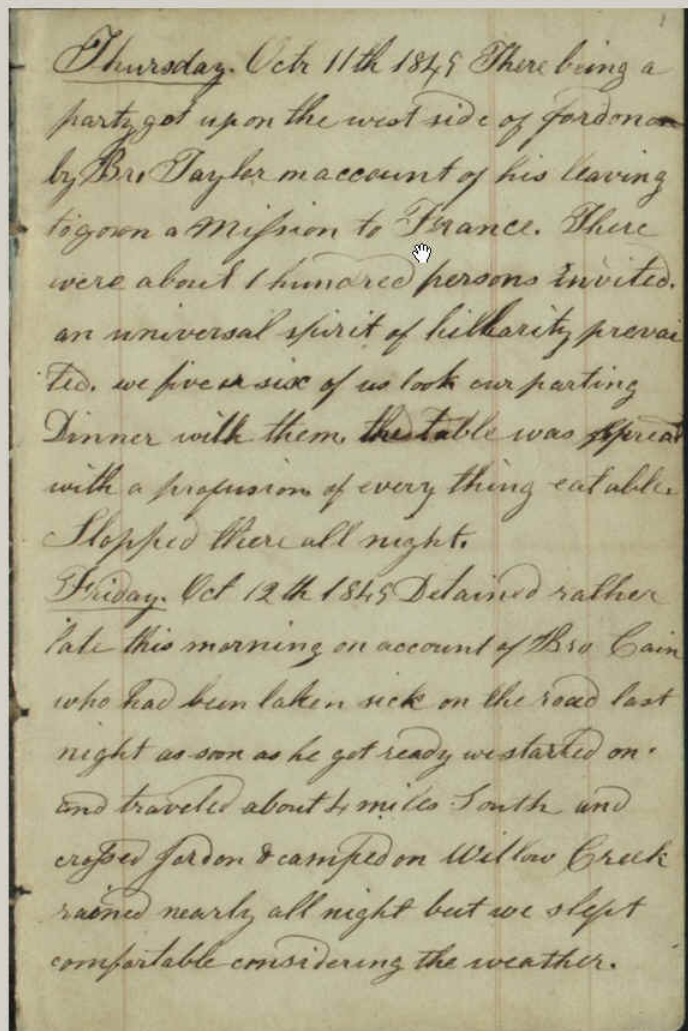 Thursday. Octr 11th 1849 There being a
party got up on the west side of Jordon on
by Bro Taylor on account of his leaving
to go on a Mission to France. There
were about 1 hundred persons invited.
an universal spirit of hillarity prevai
led. we five or six of us took our parting
Dinner with them. the table was spread
with a profusion of every thing eatable.
Stopped there all night.
Friday. Oct 12th 1849 Detained rather
late this morning on account of Bro Cain
who had been taken sick on the road last
night as soon as he got ready we started on.
and traveled about 4 miles South and
crossed Jordon & camped on Willow Creek
rained nearly all night but we slept
comfortable considering the weather.